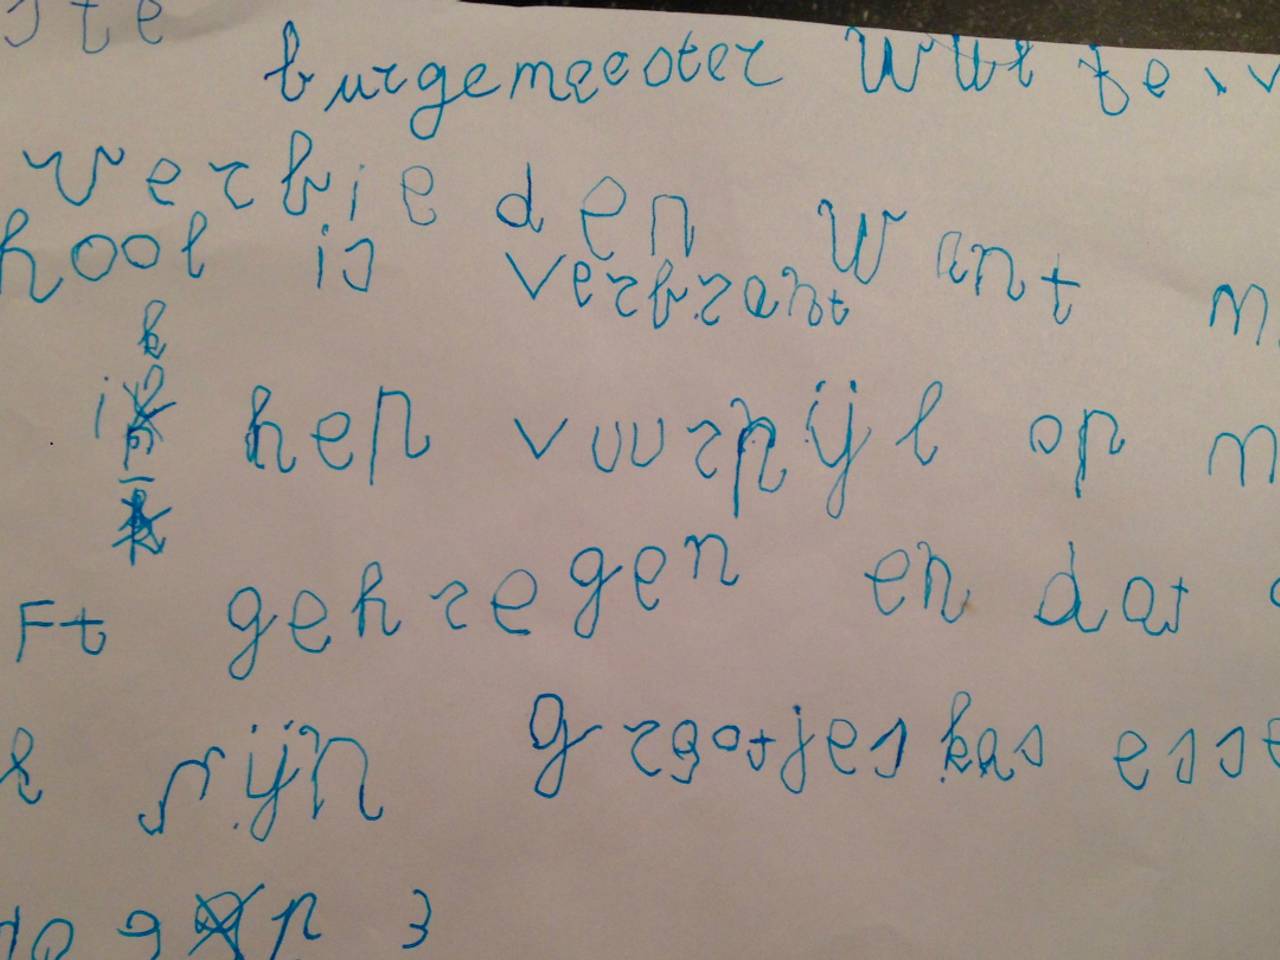 ste
burgemeester wilt
verbieden want
hool is verbrant
ik hep vuurpijl op
Ft gekregen en dat
zijn grootjeskas esse
groep 3